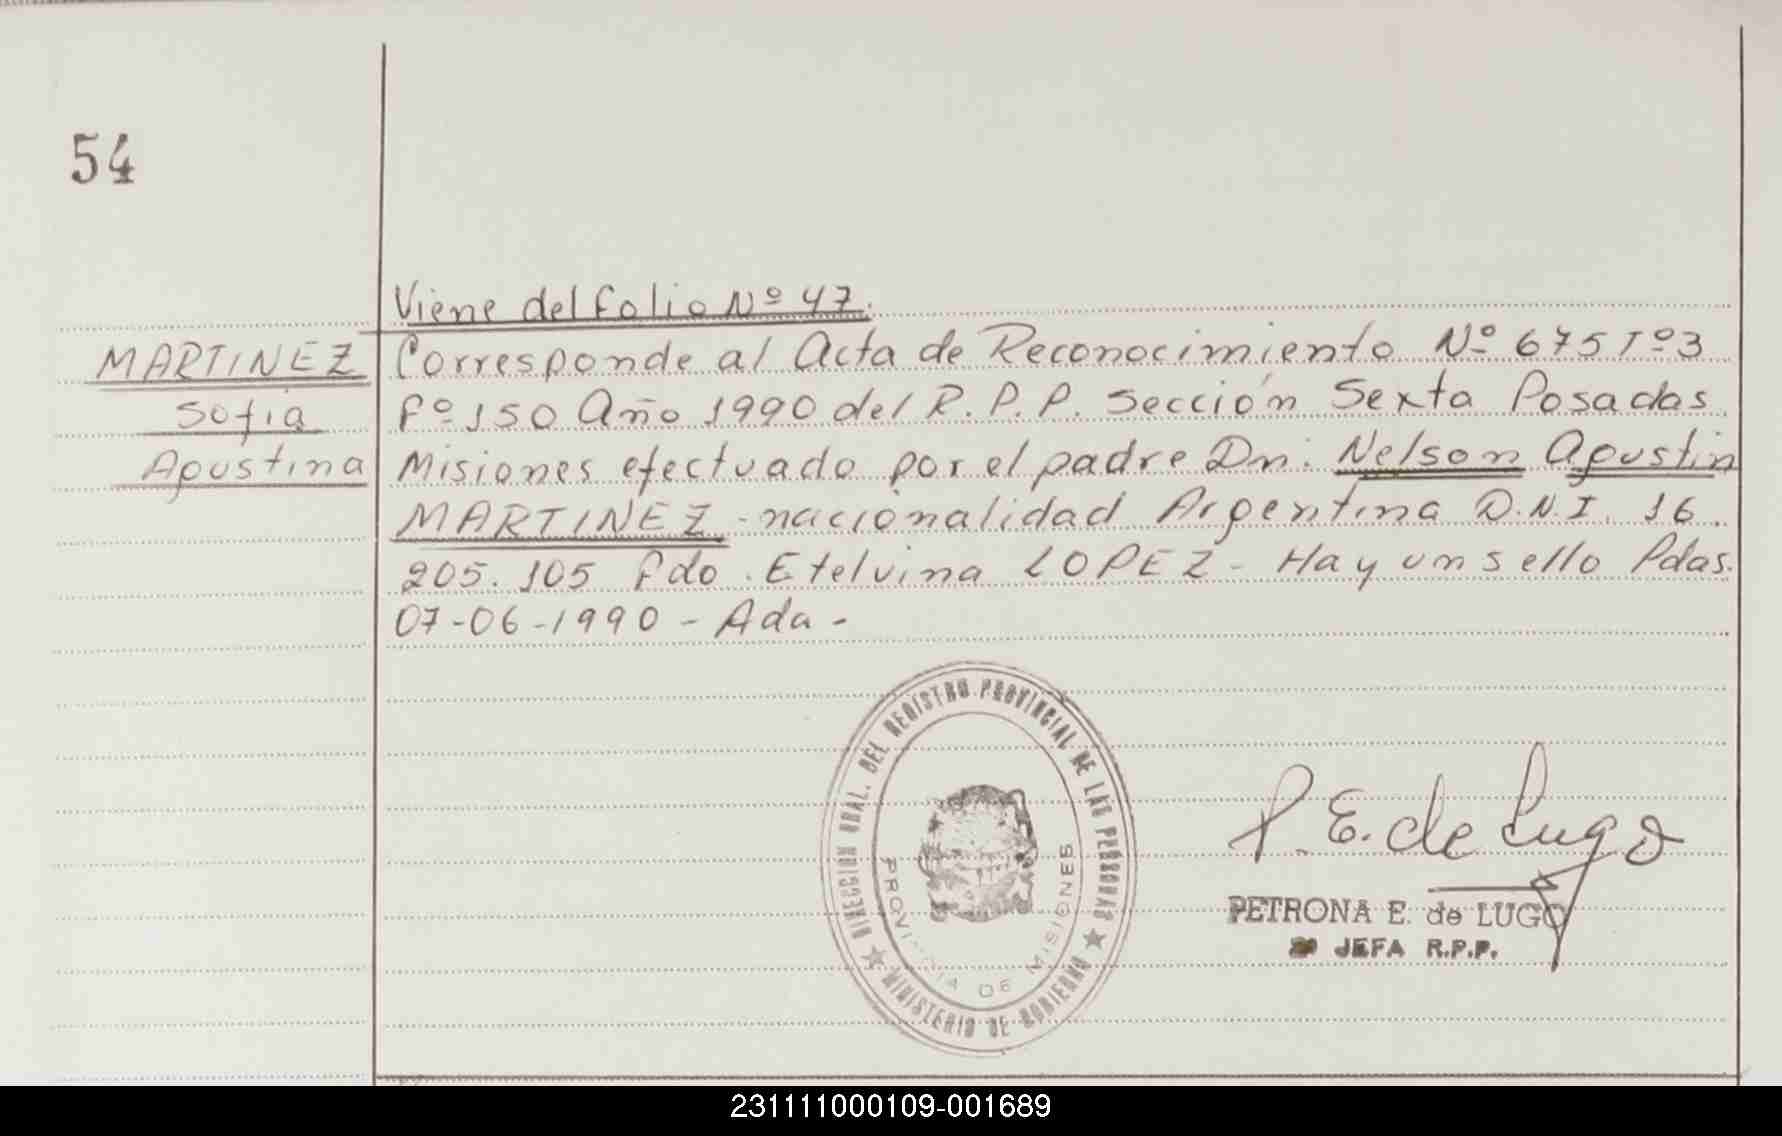 54
Viene del folio Nº 47.
MARTINEZ
Sofia
Agustina
Corresponde al Acta de Reconocimiento Nº 675 Tº 3
Fº 150 Año 1990 del R.P.P. Sección Sexta Posadas
Misiones efectuado por el padre Dn. Nelson Agustin
MARTINEZ - nacionalidad Argentina D.N.I. 16.
205.105 Fdo. Etelvina LOPEZ - Hay un sello Pdas.
07-06-1990 - Ada -
DIRECCIÓN GRAL. DEL REGISTRO PROVINCIAL DE LAS PERSONAS
MINISTERIO DE GOBIERNO
PROVINCIA DE MISIONES
P. E. de Lugo
PETRONA E. de LUGO
JEFA R.P.P.
231111000109-001689